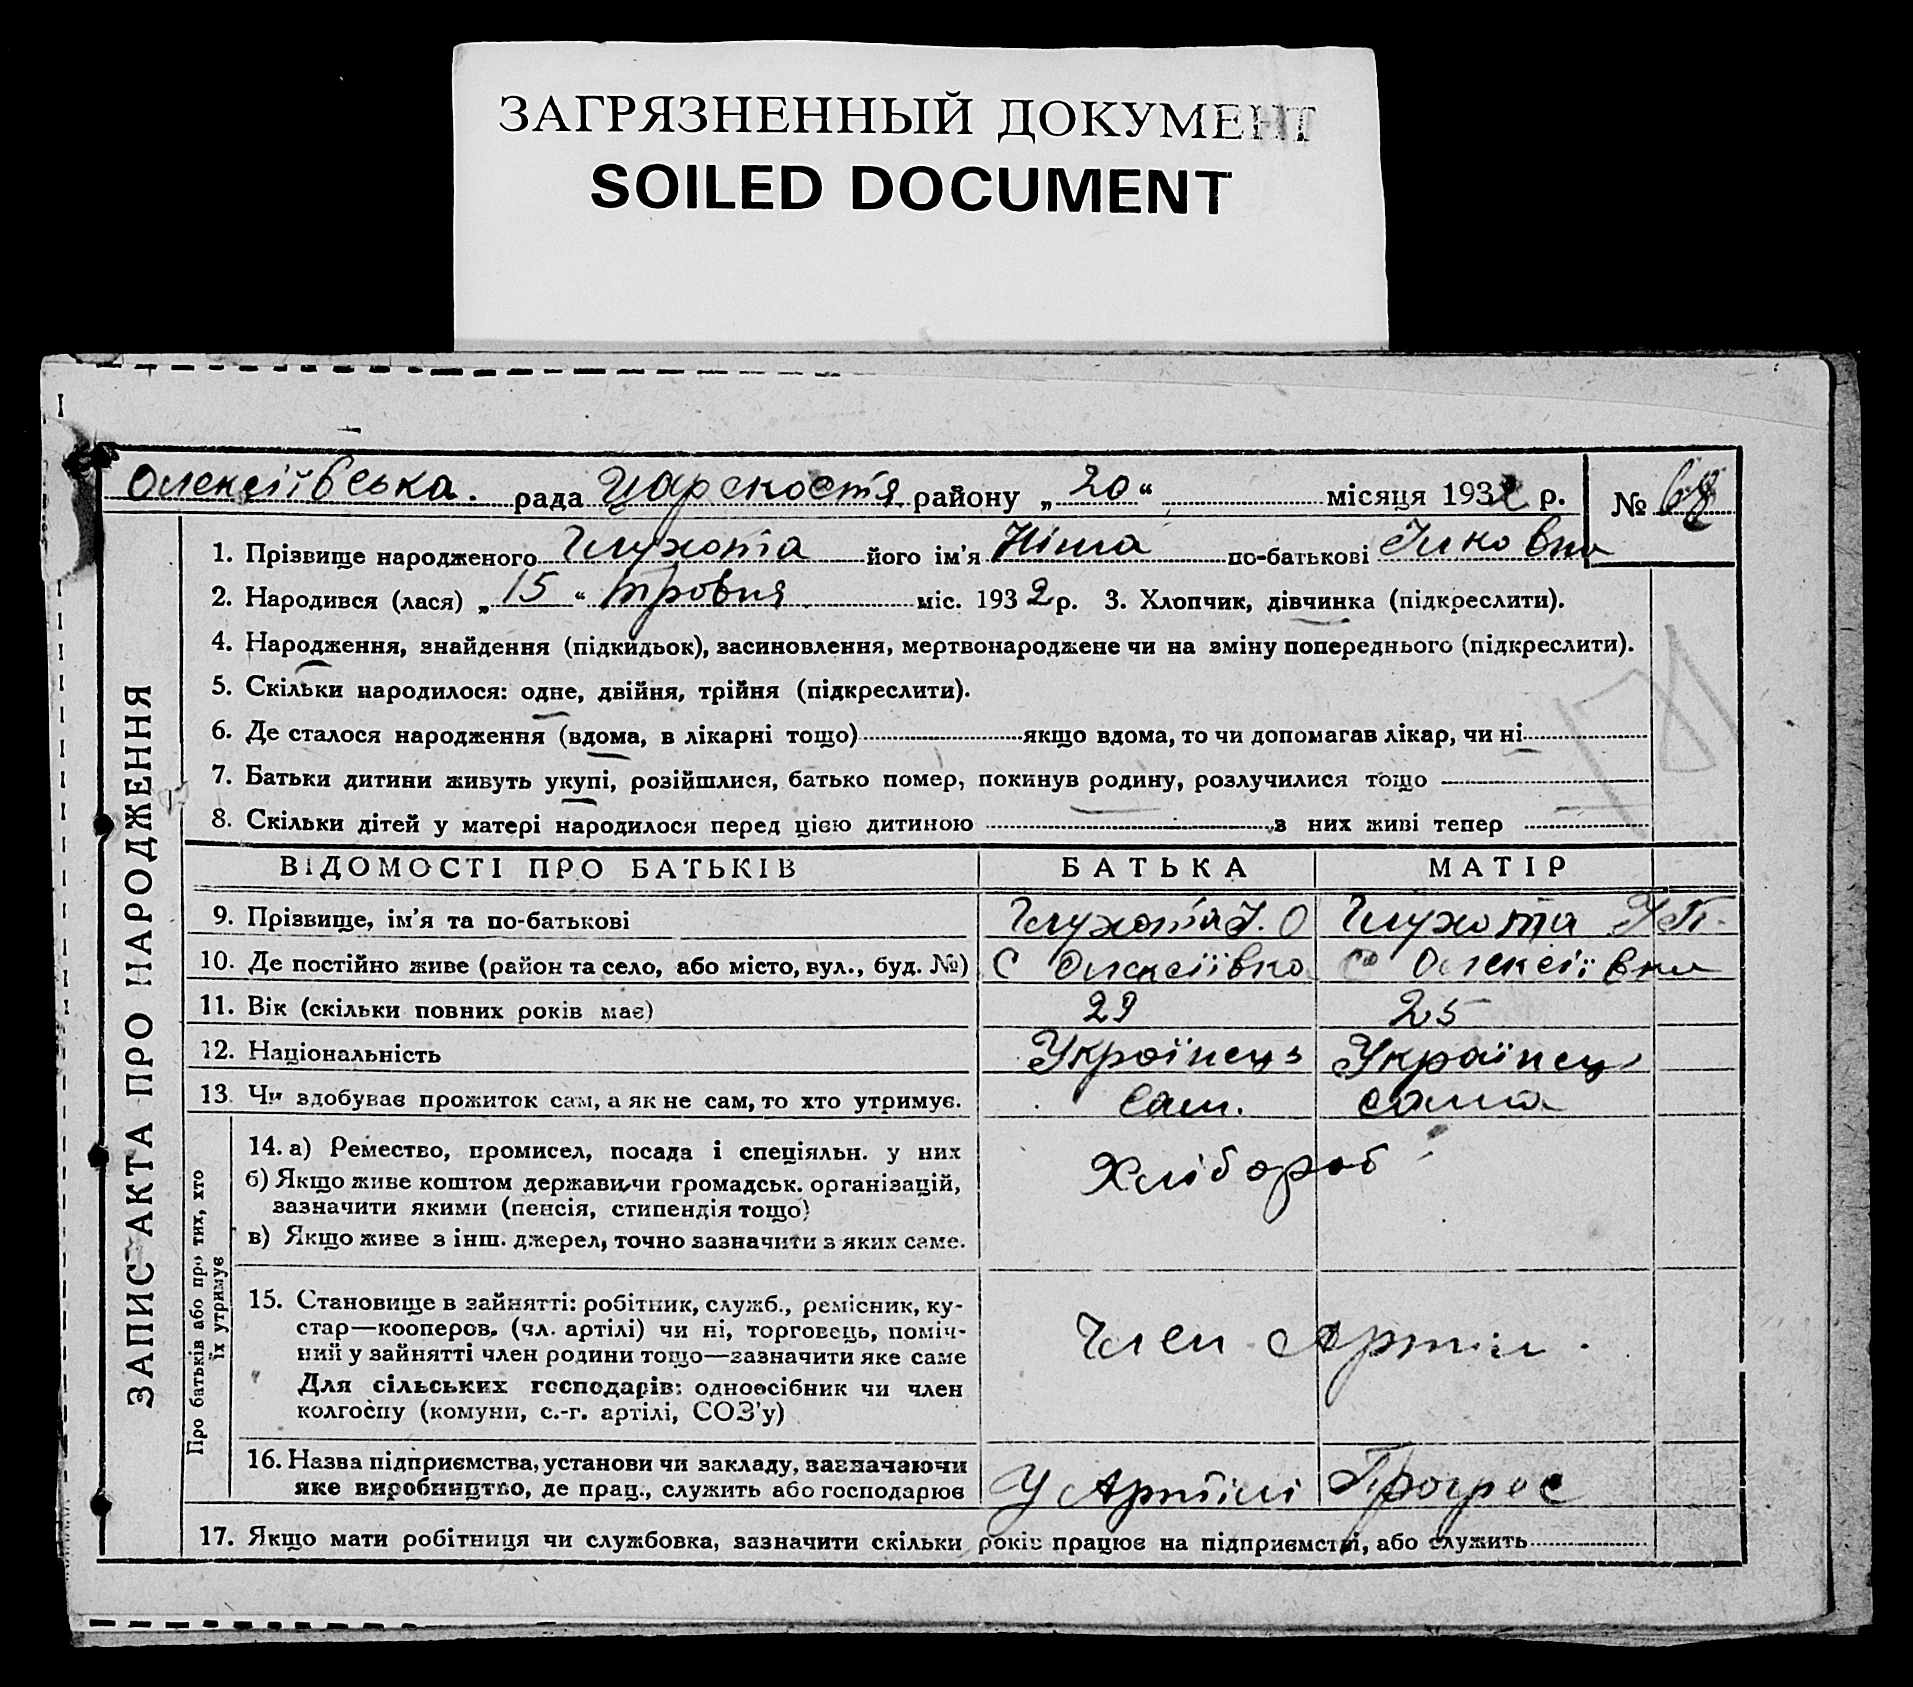 ЗАГРЯЗНЕННЫЙ ДОКУМЕНТ
SOILED DOCUMENT
Олексіївська рада району „20“ місяця 1932 р. № 68
1. Прізвище народженого Глухота його ім’я Ніна по-батькові
2. Народився (лася) „15“ травня міс. 1932 р. 3. Хлопчик, дівчинка (підкреслити).
4. Народження, знайдення (підкидьок), засиновлення, мертвонароджене чи на зміну попереднього (підкреслити).
5. Скільки народилося: одне, двійня, трійня (підкреслити).
6. Де сталося народження (вдома, в лікарні тощо) якщо вдома, то чи допомагав лікар, чи ні
7. Батьки дитини живуть укупі, розійшлися, батько помер, покинув родину, розлучилися тощо
8. Скільки дітей у матері народилося перед цією дитиною з них живі тепер
ВІДОМОСТІ ПРО БАТЬКІВ БАТЬКА МАТІР
9. Прізвище, ім’я та по-батькові Глухота І. О Глухота У П.
10. Де постійно живе (район та село, або місто, вул., буд. №) С Олексіївка с Олексіївка
11. Вік (скільки повних років має) 29 25
12. Національність Українець Українець
13. Чи здобуває прожиток сам, а як не сам, то хто утримує. Сам. Сама
14. а) Ремество, промисел, посада і спеціяльн. у них Хлібороб
б) Якщо живе коштом держави, чи громадськ. організацій,
зазначити якими (пенсія, стипендія тощо)
в) Якщо живе з інш. джерел, точно зазначити з яких саме.
15. Становище в зайнятті: робітник, служб., ремісник, ку-
стар—кооперов. (чл. артілі) чи ні, торговець, поміч-
ний у зайнятті член родини тощо—зазначити яке саме
Член Артіли.
Для сільських господарів: одноосібник чи член
колгоспу (комуни, с.-г. артілі, СОЗ’у)
16. Назва підприємства, установи чи закладу, зазначаючи
яке виробництво, де прац., служить або господарює У Артілі Прогрес
17. Якщо мати робітниця чи службовка, зазначити скільки років працює на підприємстві, або служить
ЗАПИС АКТА ПРО НАРОДЖЕННЯ
Про батьків або про тих, хто
їх утримує